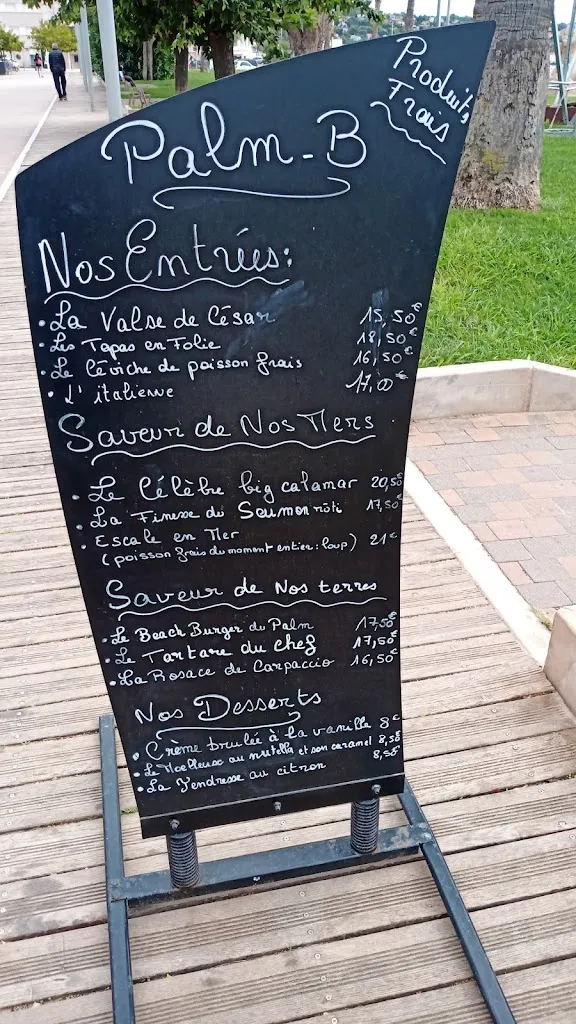 Produits
Frais
Palm-B
Nos Entrées:
• La Valse de César 15,50€
• Les Tapas en Folie 18,50€
• Le Céviche de poisson frais 16,50€
• L'italienne 17,00€
Saveur de Nos Mers
• Le Célèbre big calamar 20,50€
• La Finesse du Saumon rôti 17,50€
• Escale en Mer
(poisson frais du moment entier: loup) 21€
Saveur de Nos terres
• Le Beach Burger du Palm 17,50€
• Le Tartare du chef 17,50€
• La Rosace de Carpaccio 16,50€
Nos Desserts
• Crème brulée à la vanille 8€
• Le Moelleux au nutella et son caramel 8,50€
• La Tendresse au citron 8,50€